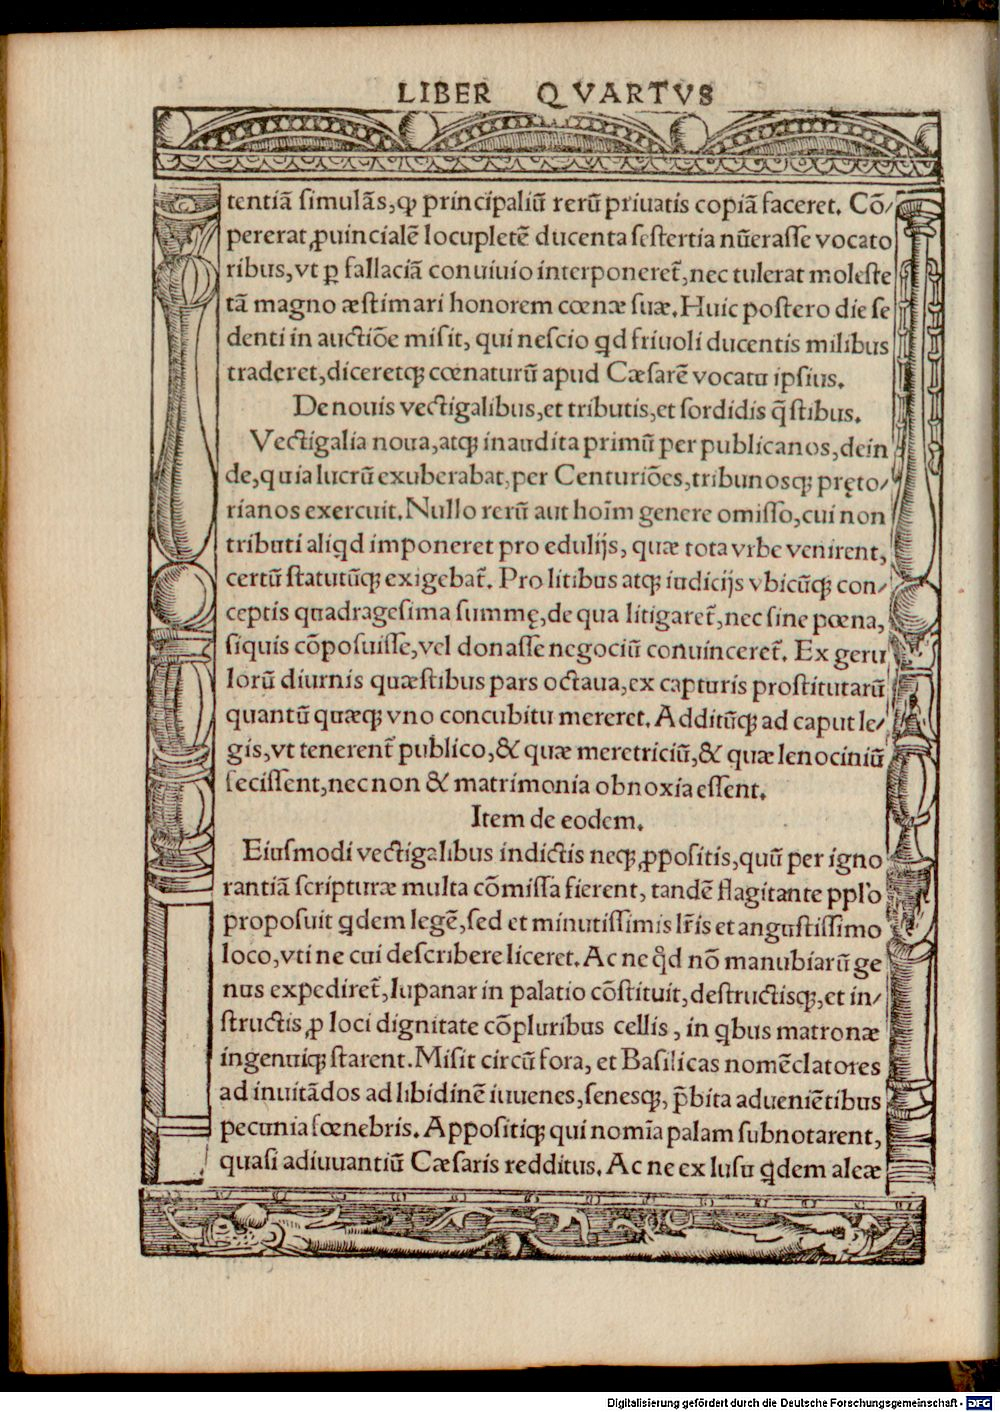 LIBER QVARTVS
tentiā simulās, ꝙ principaliū rerū priuatis copiā faceret. Cō⸗
pererat ꝓuincialē locupletē ducenta sestertia nūerasse vocato
ribus, vt ꝑ fallaciā conuiuio interponeret᷑, nec tulerat moleste
tā magno æstimari honorem cœnæ suæ. Huic postero die se
denti in auctiōe misit, qui nescio qd friuoli ducentis milibus
traderet, diceretqꝫ cœnaturū apud Cæsarē vocatu ipsius.
De nouis vectigalibus, et tributis, et sordidis q̄stibus.
Vectigalia noua, atqꝫ inaudita primū per publicanos, dein
de, quia lucrū exuberabat, per Centuriōes, tribunosqꝫ pręto⸗
rianos exercuit. Nullo rerū aut hoīm genere omisso, cui non
tributi aliqd imponeret pro edulijs, quæ tota vrbe venirent,
certū statutūqꝫ exigebat᷑. Pro litibus atqꝫ iudicijs vbicūqꝫ con⸗
ceptis quadragesima summę, de qua litigaret᷑, nec sine pœna,
siquis cōposuisse, vel donasse negociū conuinceret᷑. Ex geru
lorū diurnis quæstibus pars octaua, ex capturis prostitutarū
quantū quæqꝫ vno concubitu mereret. Additūqꝫ ad caput le⸗
gis, vt tenerent᷑ publico, & quæ meretriciū, & quæ lenociniū
fecissent, nec non & matrimonia obnoxia essent.
Item de eodem.
Eiusmodi vectigalibus indictis neqꝫ ꝓpositis, quū per igno
rantiā scripturæ multa cōmissa fierent, tandē flagitante ppl̄o
proposuit qdem legē, sed et minutissimis lr̄is et angustissimo
loco, vti ne cui describere liceret. Ac ne qd nō manubiarū ge
nus expediret᷑, lupanar in palatio cōstituit, destructisqꝫ, et in⸗
structis ꝓ loci dignitate cōpluribus cellis, in qbus matronæ
ingenuiqꝫ starent. Misit circū fora, et Basilicas nomēclatores
ad inuitādos ad libidinē iuuenes, senesqꝫ, p̄bita adueniētibus
pecunia fœnebris. Appositiqꝫ qui nomīa palam subnotarent,
quasi adiuuantiū Cæsaris redditus. Ac ne ex lusu qdem aleæ
Digitalisierung gefördert durch die Deutsche Forschungsgemeinschaft - DFG